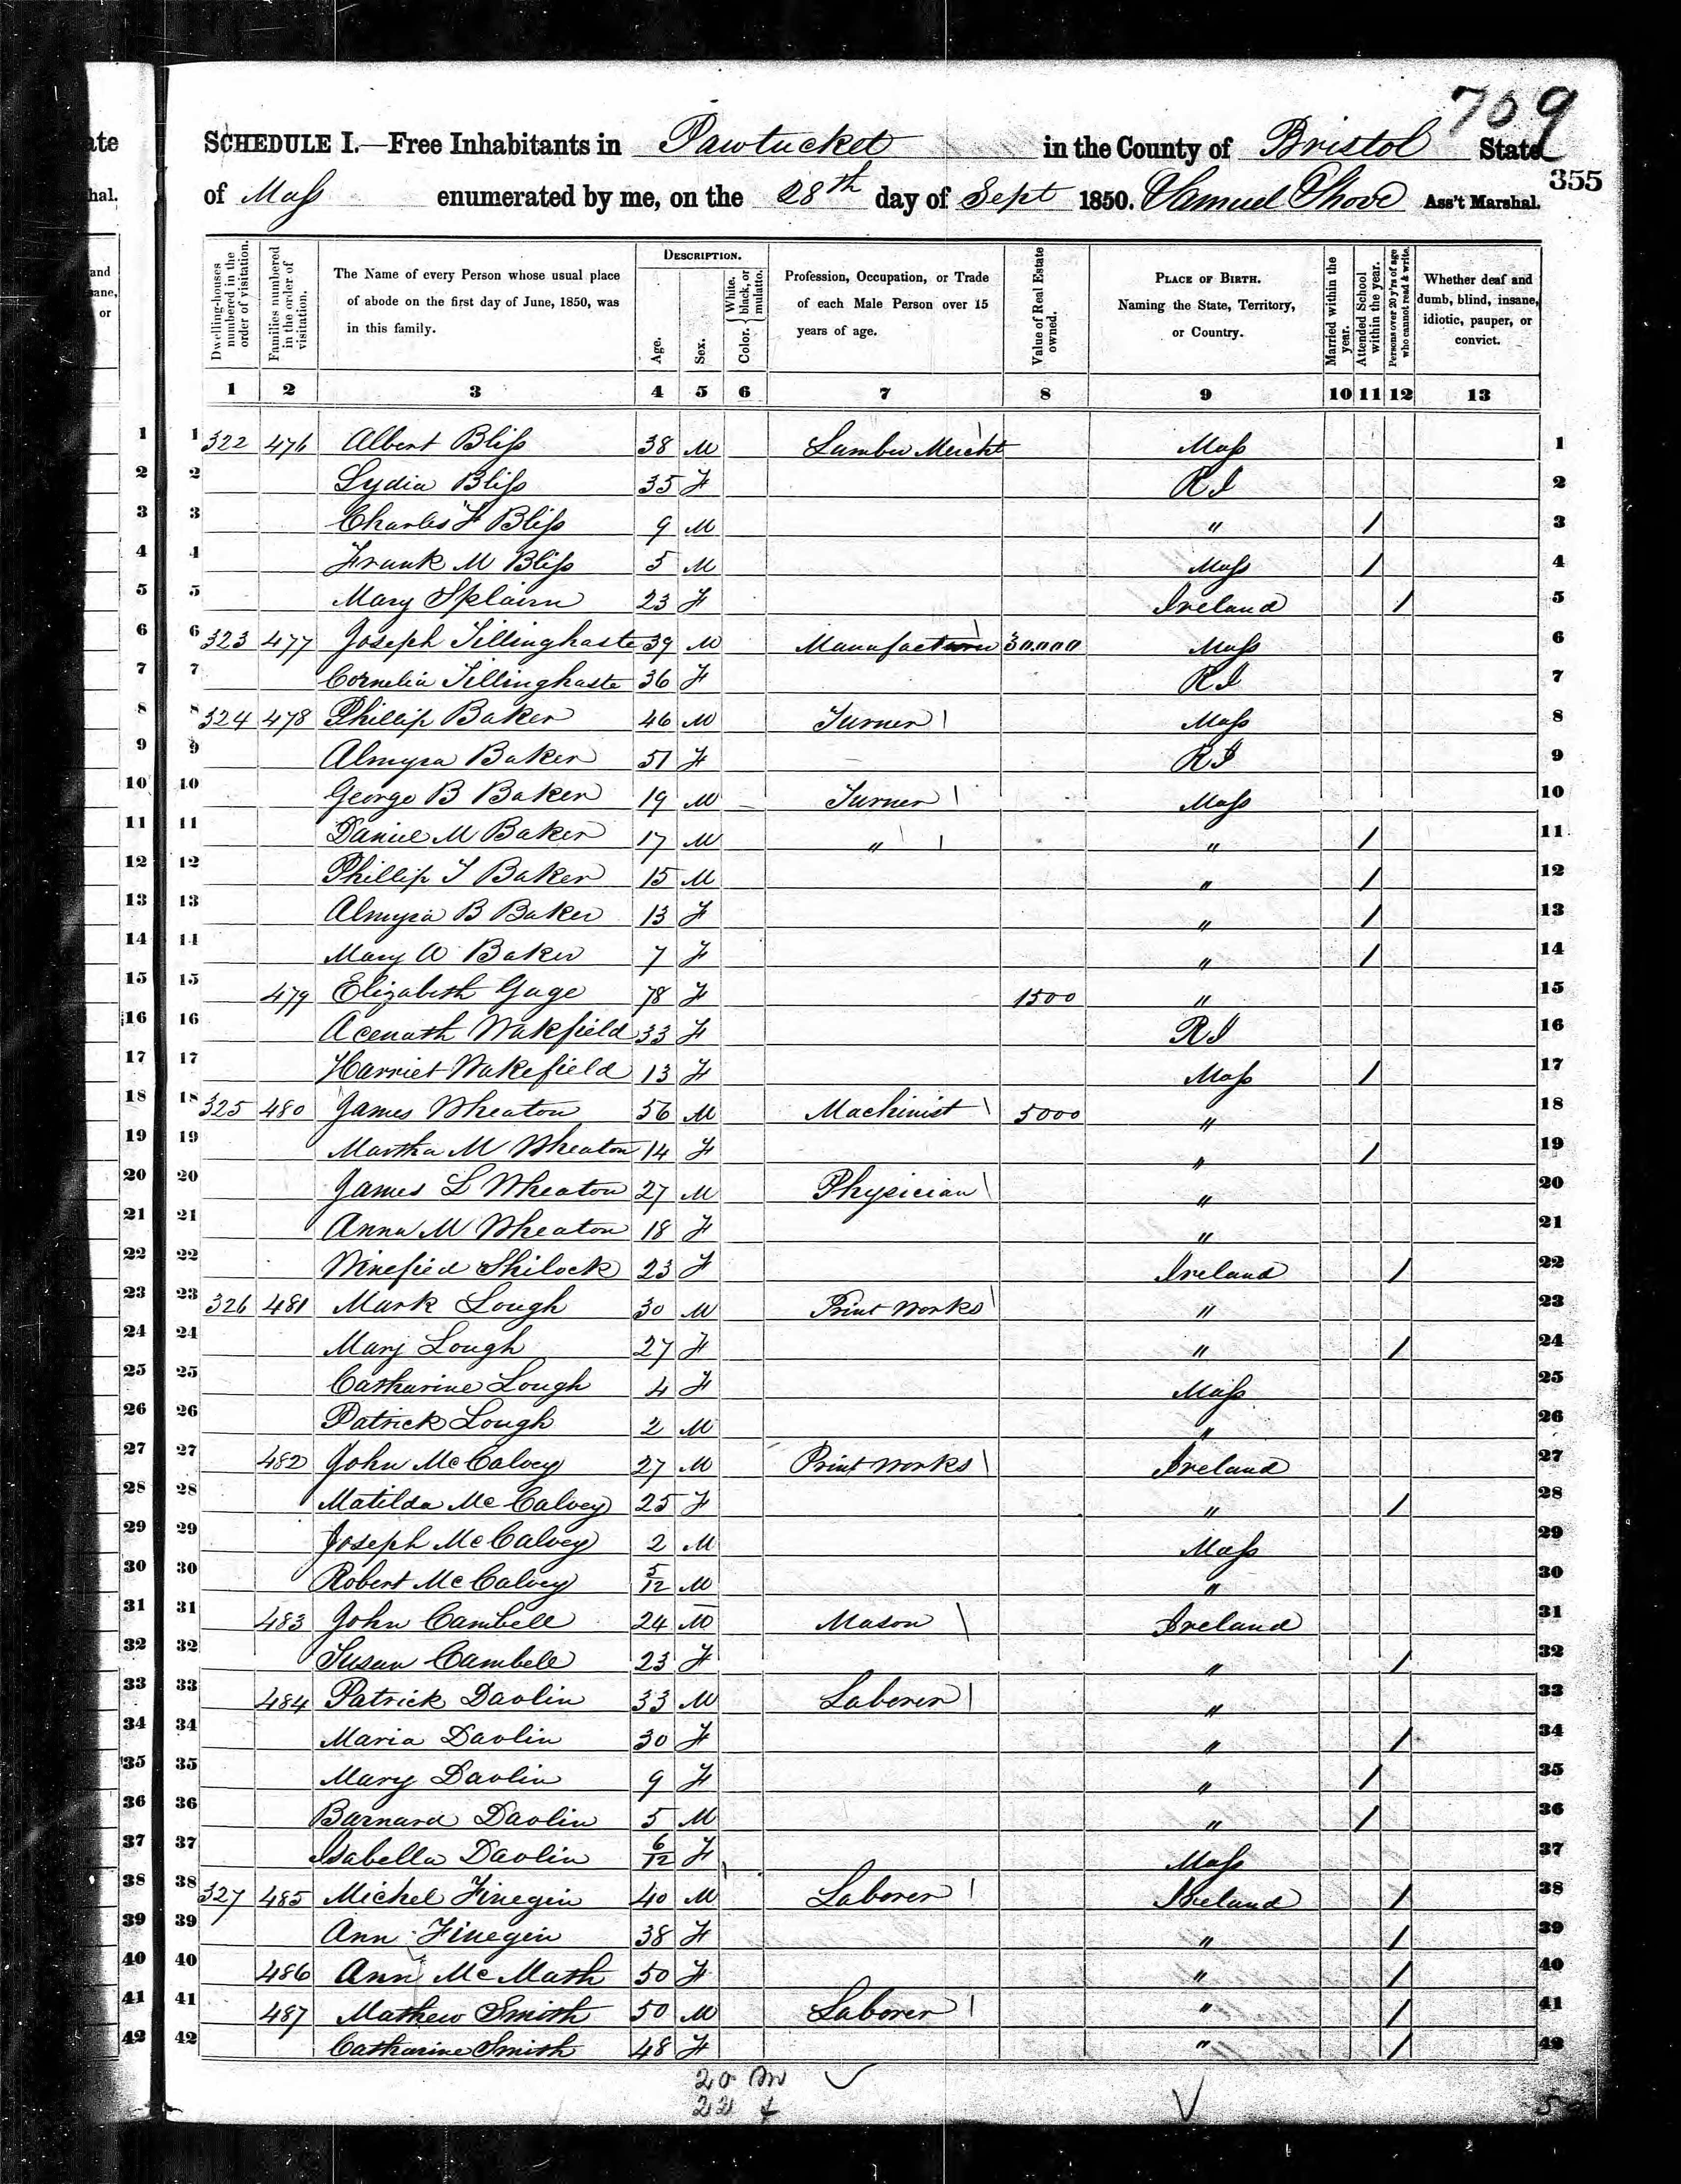 709
SCHEDULE I.—Free Inhabitants in Pawtucket in the County of Bristol State
355
of Mass enumerated by me, on the 28th day of Sept 1850. Samuel Shove Ass't Marshal.
Dwelling-houses numbered in the order of visitation. Families numbered in the order of visitation. The Name of every Person whose usual place of abode on the first day of June, 1850, was in this family. DESCRIPTION. Age. Sex. Color. { White. black, or mulatto. Profession, Occupation, or Trade of each Male Person over 15 years of age. Value of Real Estate owned. PLACE OF BIRTH. Naming the State, Territory, or Country. Married within the year. Attended School within the year. Persons over 20 y'rs of age who cannot read & write. Whether deaf and dumb, blind, insane, idiotic, pauper, or convict.
1 2 3 4 5 6 7 8 9 10 11 12 13
1 322 476 Albert Bliss 38 M Lumber Mercht Mass 1
2 Lydia Bliss 35 F R I 2
3 Charles F Bliss 9 M " / 3
4 Frank M Bliss 5 M Mass / 4
5 Mary Splairn 23 F Ireland / 5
6 323 477 Joseph Tillinghaste 39 M Manufacturer 30.000 Mass 6
7 Cornelia Tillinghaste 36 F R I 7
8 324 478 Phillip Baker 46 M Turner Mass 8
9 Almyra Baker 51 F R I 9
10 George B Baker 19 M Turner Mass 10
11 Daniel M Baker 17 M " " / 11
12 Phillip T Baker 15 M " / 12
13 Almyra B Baker 13 F " / 13
14 Mary A Baker 7 F " / 14
15 479 Elizabeth Gage 78 F 1500 " 15
16 Acenath Wakfield 33 F R I 16
17 Harriet Wakefield 13 F Mass / 17
18 325 480 James Wheaton 56 M Machinist 5000 " 18
19 Martha M Wheaton 14 F " / 19
20 James L Wheaton 27 M Physician " 20
21 Anna M Wheaton 18 F " 21
22 Winefied Shilock 23 F Ireland / 22
23 326 481 Mark Lough 30 M Print Works " 23
24 Mary Lough 27 F " / 24
25 Catharine Lough 4 F Mass 25
26 Patrick Lough 2 M " 26
27 482 John McCalvey 27 M Print Works Ireland 27
28 Matilda McCalvey 25 F " / 28
29 Joseph McCalvey 2 M Mass 29
30 Robert McCalvey 5/12 M " 30
31 483 John Cambell 24 M Mason Ireland 31
32 Susan Cambell 23 F " / 32
33 484 Patrick Davlin 33 M Laborer " 33
34 Maria Davlin 30 F " / 34
35 Mary Davlin 9 F " / 35
36 Barnard Davlin 5 M " / 36
37 Isabella Davlin 6/12 F Mass 37
38 327 485 Michel Finegin 40 M Laborer Ireland / 38
39 Ann Finegin 38 F " / 39
40 486 Ann McMath 50 F " / 40
41 487 Mathew Smith 50 M Laborer " / 41
42 Catharine Smith 48 F " / 42
20 m
22 f